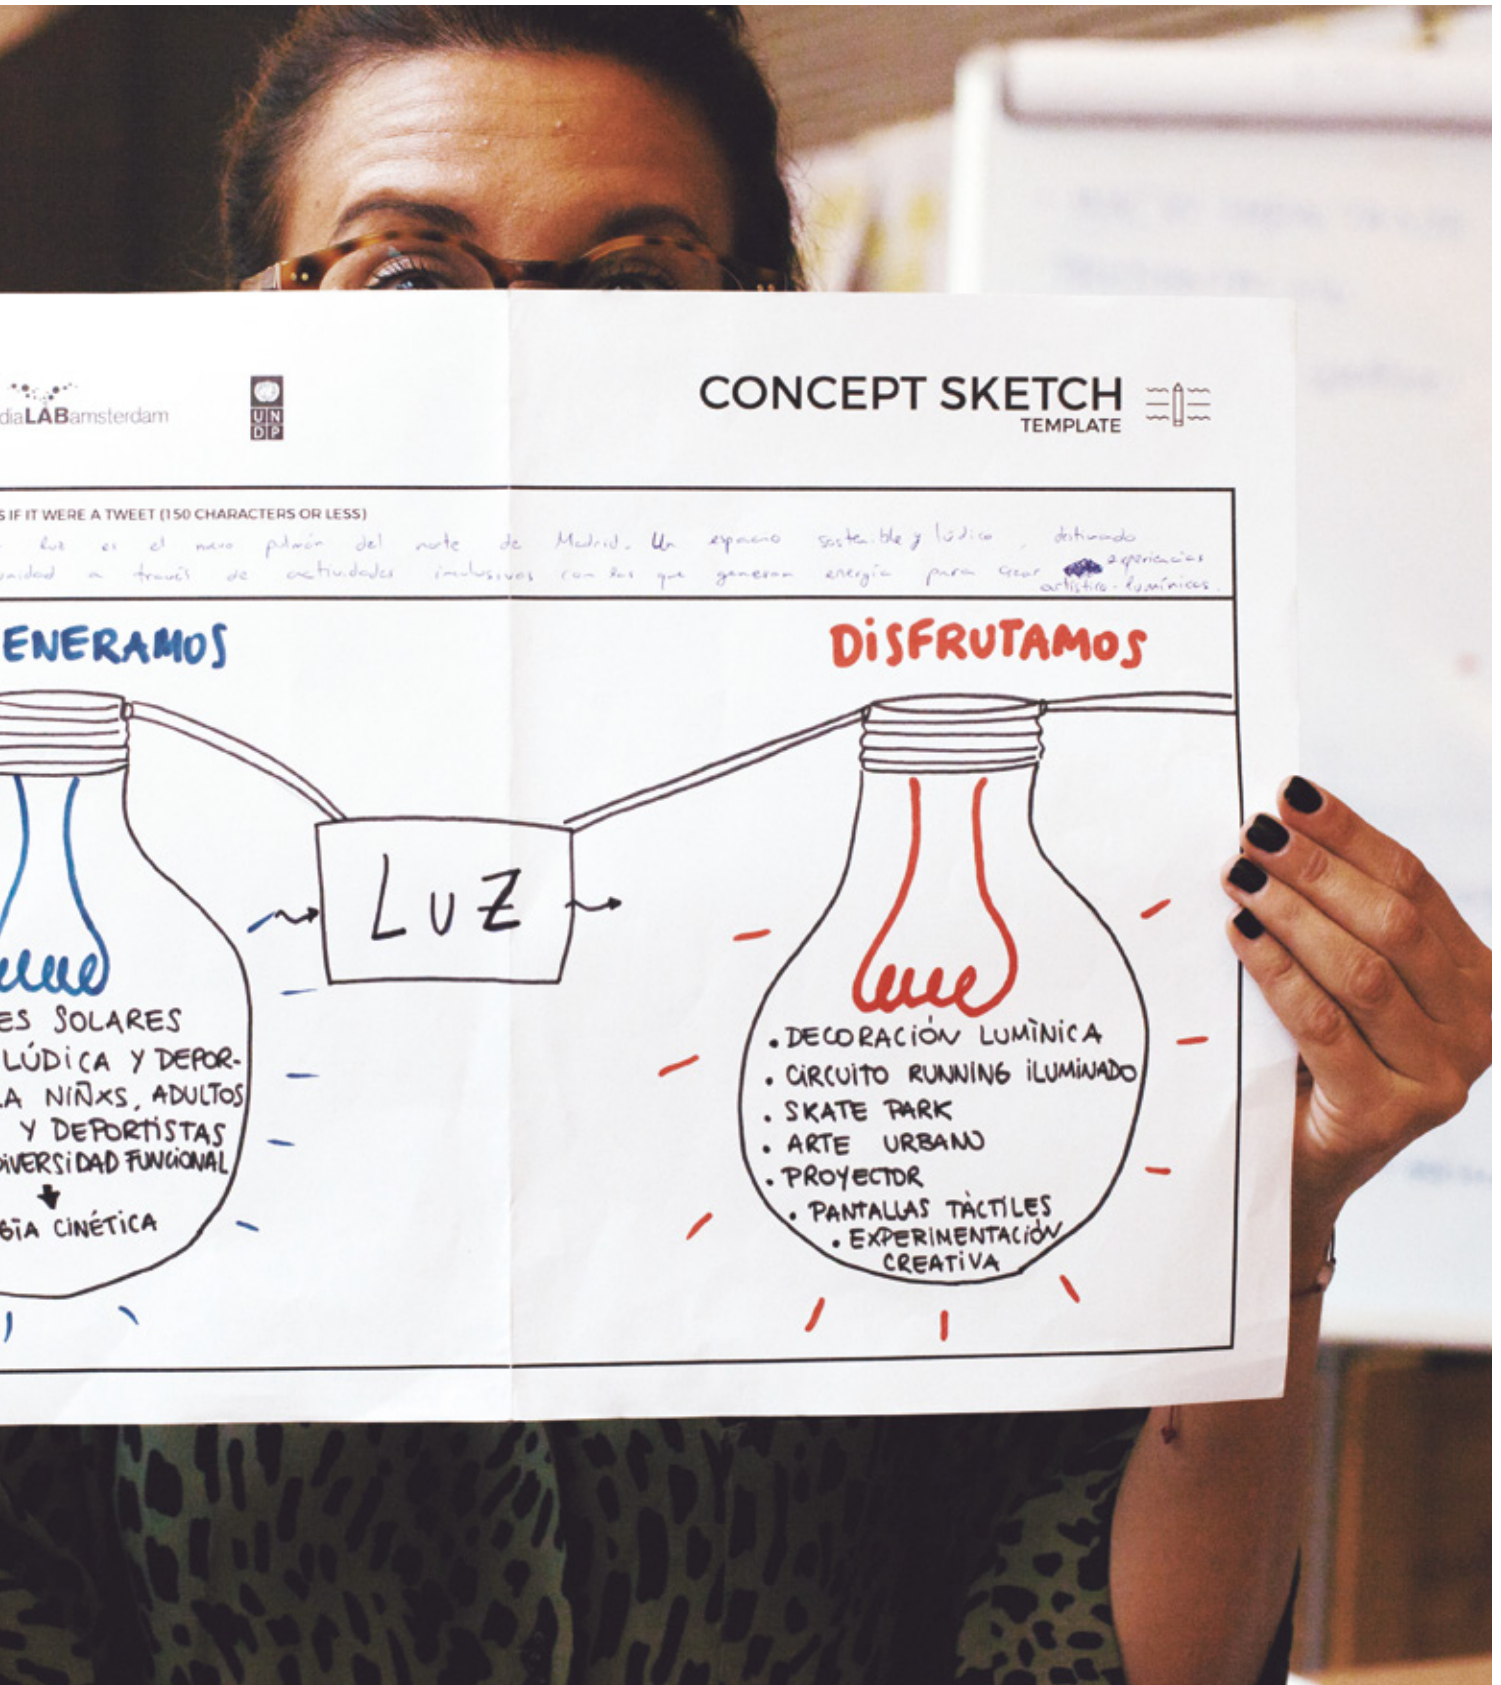 diaLABamsterdam
UN
DP
CONCEPT SKETCH
TEMPLATE
S IF IT WERE A TWEET (150 CHARACTERS OR LESS)
luz es el nuevo pulmón del norte de Madrid. Un espacio sostenible y lúdico, destinado
unidad a través de actividades inclusivas con las que generan energía para crear experiencias
artístico-lumínicas.
ENERAMOS
DISFRUTAMOS
LUZ
ES SOLARES
LÚDICA Y DEPOR-
A NIÑXS, ADULTOS
Y DEPORTISTAS
DIVERSIDAD FUNCIONAL
GÍA CINÉTICA
• DECORACIÓN LUMÌNICA
• CIRCUITO RUNNING ILUMINADO
• SKATE PARK
• ARTE URBANO
• PROYECTOR
• PANTALLAS TÀCTILES
• EXPERIMENTACIÓN
CREATIVA